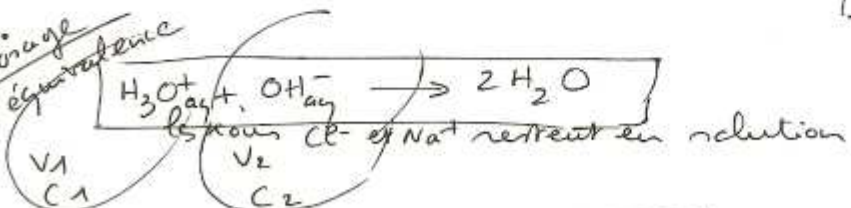 dosage
équivalence
H₃O⁺aq + OH⁻aq → 2 H₂O
les ions Cl⁻ et Na⁺ restent en solution
V1 V2
C1 C2